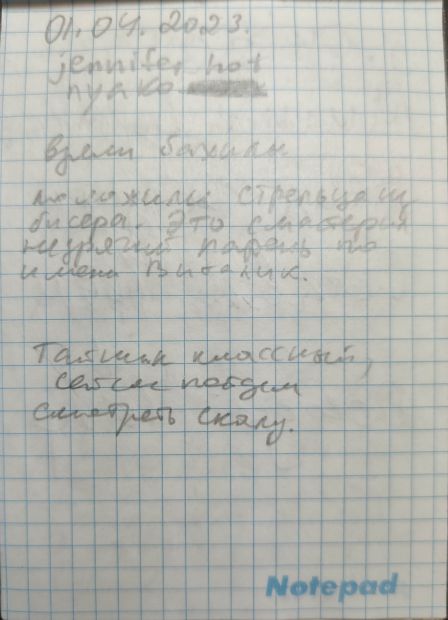 01.04.2023.
jennifer hot
пуако
Время бахилы
положили стрельцам
бисера. Это смастерил
неурячий парень по
имени Виталик.
Таймык классный,
сейчас пойдем
смотреть скалу.
Notepad